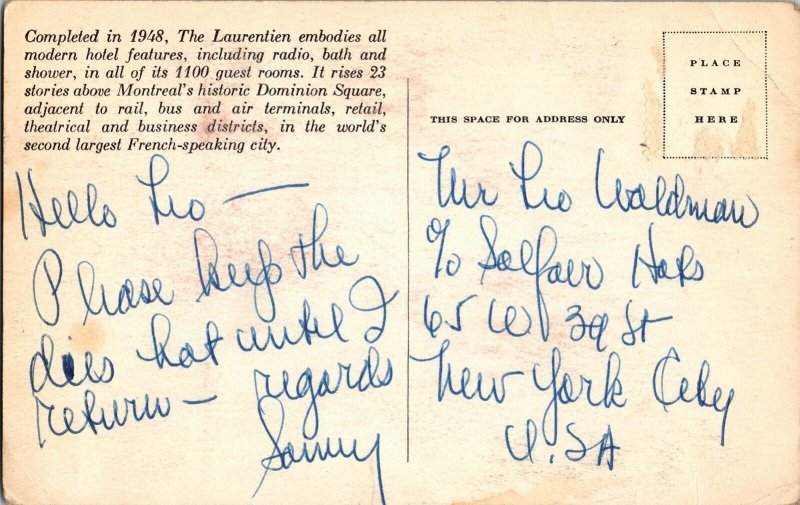 Completed in 1948, The Laurentien embodies all
modern hotel features, including radio, bath and
shower, in all of its 1100 guest rooms. It rises 23
stories above Montreal's historic Dominion Square,
adjacent to rail, bus and air terminals, retail,
theatrical and business districts, in the world's
second largest French-speaking city.
Hello Leo —
Please keep the
dies hot until I
return — regards
Sammy
PLACE
STAMP
HERE
THIS SPACE FOR ADDRESS ONLY
Mr Leo Waldman
c/o Hats
65 W 39 St
New York City
U.SA